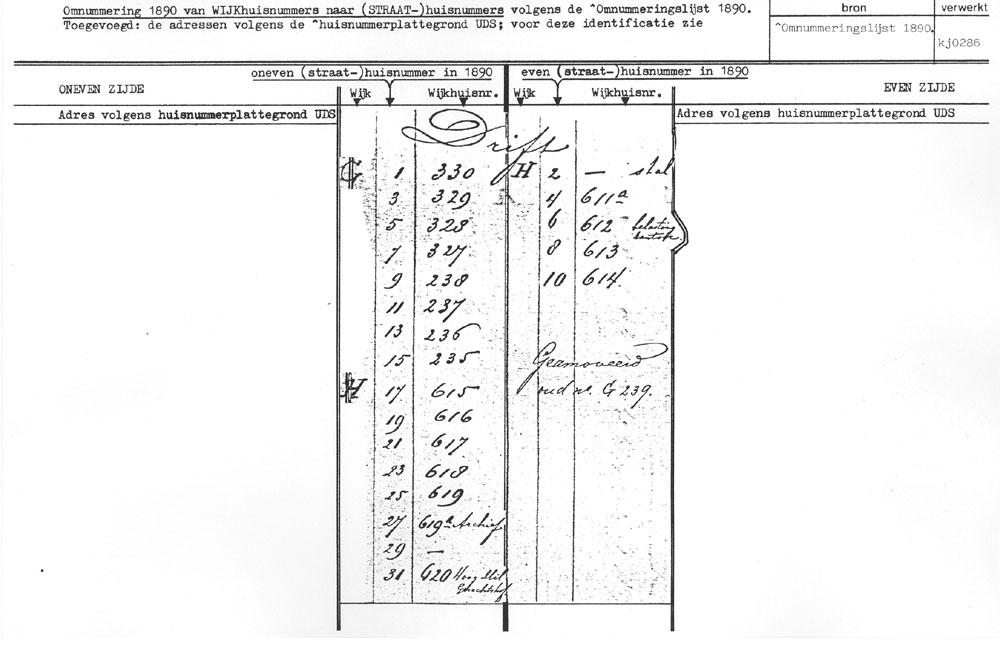 Omnummering 1890 van WIJKhuisnummers naar (STRAAT-)huisnummers volgens de ^Omnummeringslijst 1890.
Toegevoegd: de adressen volgens de ^huisnummerplattegrond UDS; voor deze identificatie zie
bron
verwerkt
^Omnummeringslijst 1890.
kj0286
oneven (straat-)huisnummer in 1890
even (straat-)huisnummer in 1890
ONEVEN ZIJDE
Wijk
Wijkhuisnr.
Wijk
Wijkhuisnr.
EVEN ZIJDE
Adres volgens huisnummerplattegrond UDS
Adres volgens huisnummerplattegrond UDS
Drift
G 1 330
3 329
5 328
7 327
9 238
11 237
13 236
15 235
H 17 615
19 616
21 617
23 618
25 619
27 619a Archief
29 —
31 620 Hoog
H 2 — stal
4 611a
6 612
8 613
10 614
Geamoveerd
oud nr. G 239.